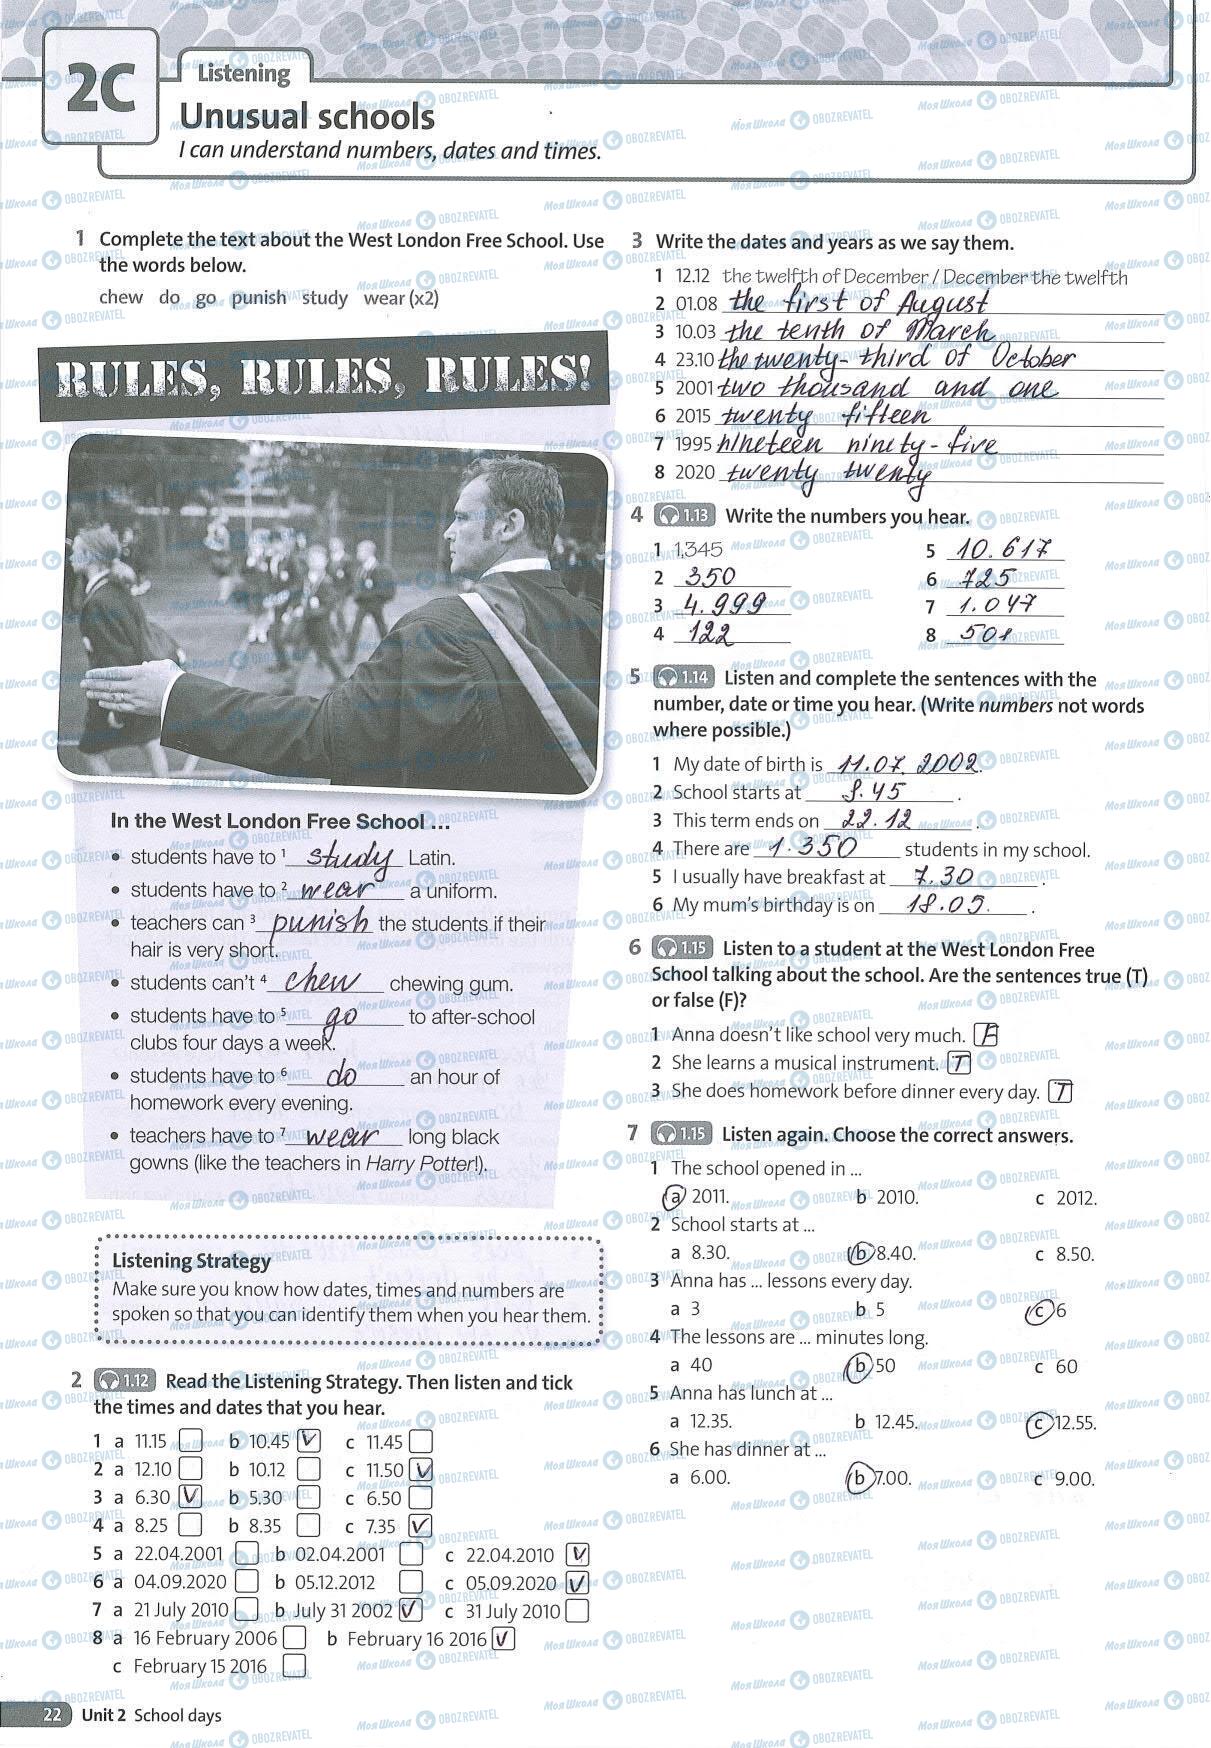 2C
Listening
Unusual schools
I can understand numbers, dates and times.
1 Complete the text about the West London Free School. Use
the words below.
chew do go punish study wear (x2)
RULES, RULES, RULES!
In the West London Free School ...
• students have to 1 study Latin.
• students have to 2 wear a uniform.
• teachers can 3 punish the students if their
hair is very short.
• students can't 4 chew chewing gum.
• students have to 5 go to after-school
clubs four days a week.
• students have to 6 do an hour of
homework every evening.
• teachers have to 7 wear long black
gowns (like the teachers in Harry Potter!).
Listening Strategy
Make sure you know how dates, times and numbers are
spoken so that you can identify them when you hear them.
2 1.12 Read the Listening Strategy. Then listen and tick
the times and dates that you hear.
1 a 11.15 b 10.45 V c 11.45
2 a 12.10 b 10.12 c 11.50 V
3 a 6.30 V b 5.30 c 6.50
4 a 8.25 b 8.35 c 7.35 V
5 a 22.04.2001 b 02.04.2001 c 22.04.2010 V
6 a 04.09.2020 b 05.12.2012 c 05.09.2020 V
7 a 21 July 2010 b July 31 2002 V c 31 July 2010
8 a 16 February 2006 b February 16 2016 V
c February 15 2016
22 Unit 2 School days
3 Write the dates and years as we say them.
1 12.12 the twelfth of December / December the twelfth
2 01.08 the first of August
3 10.03 the tenth of March
4 23.10 the twenty-third of October
5 2001 two thousand and one
6 2015 twenty fifteen
7 1995 nineteen ninety-five
8 2020 twenty twenty
4 1.13 Write the numbers you hear.
1 1,345 5 10.617
2 350 6 725
3 4.999 7 1.047
4 122 8 501
5 1.14 Listen and complete the sentences with the
number, date or time you hear. (Write numbers not words
where possible.)
1 My date of birth is 11.07.2002.
2 School starts at 8.45.
3 This term ends on 22.12.
4 There are 1.350 students in my school.
5 I usually have breakfast at 7.30.
6 My mum's birthday is on 18.05.
6 1.15 Listen to a student at the West London Free
School talking about the school. Are the sentences true (T)
or false (F)?
1 Anna doesn't like school very much. F
2 She learns a musical instrument. T
3 She does homework before dinner every day. T
7 1.15 Listen again. Choose the correct answers.
1 The school opened in ...
a 2011. b 2010. c 2012.
2 School starts at ...
a 8.30. b 8.40. c 8.50.
3 Anna has ... lessons every day.
a 3 b 5 c 6
4 The lessons are ... minutes long.
a 40 b 50 c 60
5 Anna has lunch at ...
a 12.35. b 12.45. c 12.55.
6 She has dinner at ...
a 6.00. b 7.00. c 9.00.
Моя Школа OBOZREVATEL